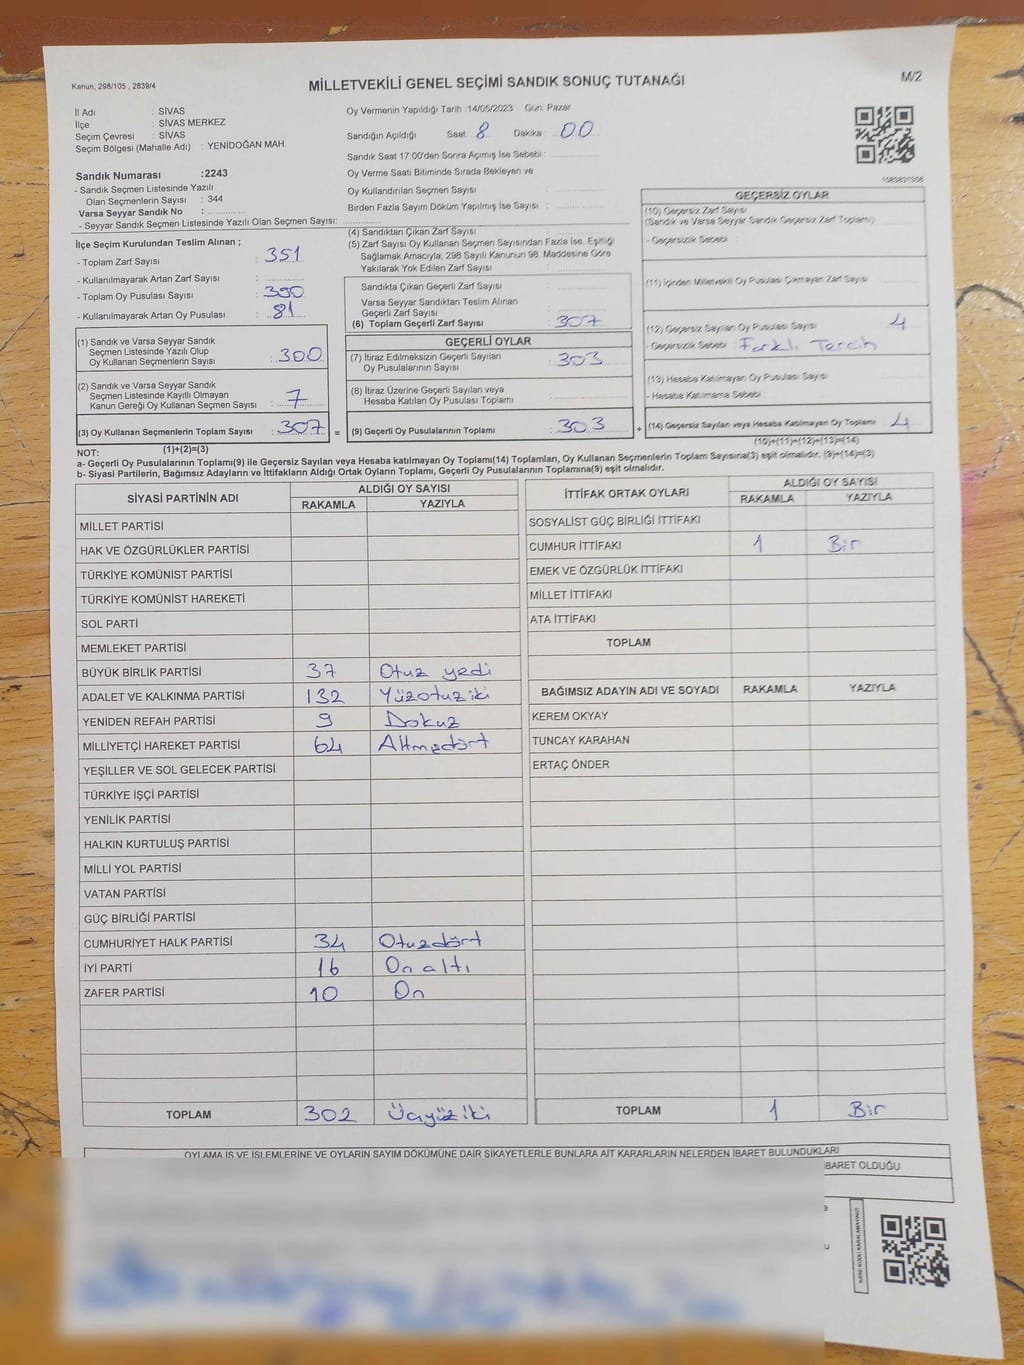 Kanun; 298/105 , 2839/4
MİLLETVEKİLİ GENEL SEÇİMİ SANDIK SONUÇ TUTANAĞI
M/2
İl Adı : SİVAS
İlçe : SİVAS MERKEZ
Seçim Çevresi : SİVAS
Seçim Bölgesi (Mahalle Adı) : YENİDOĞAN MAH.
Sandık Numarası :2243
- Sandık Seçmen Listesinde Yazılı
Olan Seçmenlerin Sayısı : 344
Varsa Seyyar Sandık No :
- Seyyar Sandık Seçmen Listesinde Yazılı Olan Seçmen Sayısı:
Oy Vermenin Yapıldığı Tarih :14/05/2023 Gün: Pazar
Sandığın Açıldığı Saat: 8 Dakika : 00
Sandık Saat 17:00'den Sonra Açılmış İse Sebebi :
Oy Verme Saati Bitiminde Sırada Bekleyen ve
Oy Kullandırılan Seçmen Sayısı :
Birden Fazla Sayım Döküm Yapılmış İse Sayısı :
İlçe Seçim Kurulundan Teslim Alınan ;
- Toplam Zarf Sayısı : 351
- Kullanılmayarak Artan Zarf Sayısı :
- Toplam Oy Pusulası Sayısı : 390
- Kullanılmayarak Artan Oy Pusulası : 81
(1) Sandık ve Varsa Seyyar Sandık
Seçmen Listesinde Yazılı Olup
Oy Kullanan Seçmenlerin Sayısı : 300
(2) Sandık ve Varsa Seyyar Sandık
Seçmen Listesinde Kayıtlı Olmayan
Kanun Gereği Oy Kullanan Seçmen Sayısı : 7
(3) Oy Kullanan Seçmenlerin Toplam Sayısı : 307
(1)+(2)=(3)
(4) Sandıktan Çıkan Zarf Sayısı :
(5) Zarf Sayısı Oy Kullanan Seçmen Sayısından Fazla İse, Eşitliği
Sağlamak Amacıyla; 298 Sayılı Kanunun 98. Maddesine Göre
Yakılarak Yok Edilen Zarf Sayısı :
Sandıkta Çıkan Geçerli Zarf Sayısı :
Varsa Seyyar Sandıktan Teslim Alınan
Geçerli Zarf Sayısı :
(6) Toplam Geçerli Zarf Sayısı : 307
GEÇERLİ OYLAR
(7) İtiraz Edilmeksizin Geçerli Sayılan
Oy Pusulalarının Sayısı : 303
(8) İtiraz Üzerine Geçerli Sayılan veya
Hesaba Katılan Oy Pusulası Toplamı :
= (9) Geçerli Oy Pusulalarının Toplamı : 303 +
GEÇERSİZ OYLAR
(10) Geçersiz Zarf Sayısı
(Sandık ve Varsa Seyyar Sandık Geçersiz Zarf Toplamı) :
- Geçersizlik Sebebi :
(11) İçinden Milletvekili Oy Pusulası Çıkmayan Zarf Sayısı :
(12) Geçersiz Sayılan Oy Pusulası Sayısı : 4
- Geçersizlik Sebebi : Farklı Tercih
(13) Hesaba Katılmayan Oy Pusulası Sayısı :
- Hesaba Katılmama Sebebi :
(14) Geçersiz Sayılan veya Hesaba Katılmayan Oy Toplamı : 4
(10)+(11)+(12)+(13)=(14)
NOT:
a- Geçerli Oy Pusulalarının Toplamı(9) ile Geçersiz Sayılan veya Hesaba katılmayan Oy Toplamı(14) Toplamları, Oy Kullanan Seçmenlerin Toplam Sayısına(3) eşit olmalıdır. (9)+(14)=(3)
b- Siyasi Partilerin, Bağımsız Adayların ve İttifakların Aldığı Ortak Oyların Toplamı, Geçerli Oy Pusulalarının Toplamına(9) eşit olmalıdır.
SİYASİ PARTİNİN ADI ALDIĞI OY SAYISI
RAKAMLA YAZIYLA
MİLLET PARTİSİ
HAK VE ÖZGÜRLÜKLER PARTİSİ
TÜRKİYE KOMÜNİST PARTİSİ
TÜRKİYE KOMÜNİST HAREKETİ
SOL PARTİ
MEMLEKET PARTİSİ
BÜYÜK BİRLİK PARTİSİ 37 Otuz yedi
ADALET VE KALKINMA PARTİSİ 132 Yüzotuziki
YENİDEN REFAH PARTİSİ 9 Dokuz
MİLLİYETÇİ HAREKET PARTİSİ 64 Altmışdört
YEŞİLLER VE SOL GELECEK PARTİSİ
TÜRKİYE İŞÇİ PARTİSİ
YENİLİK PARTİSİ
HALKIN KURTULUŞ PARTİSİ
MİLLİ YOL PARTİSİ
VATAN PARTİSİ
GÜÇ BİRLİĞİ PARTİSİ
CUMHURİYET HALK PARTİSİ 34 Otuzdört
İYİ PARTİ 16 On altı
ZAFER PARTİSİ 10 On
TOPLAM 302 Üçyüziki
İTTİFAK ORTAK OYLARI ALDIĞI OY SAYISI
RAKAMLA YAZIYLA
SOSYALİST GÜÇ BİRLİĞİ İTTİFAKI
CUMHUR İTTİFAKI 1 Bir
EMEK VE ÖZGÜRLÜK İTTİFAKI
MİLLET İTTİFAKI
ATA İTTİFAKI
TOPLAM
BAĞIMSIZ ADAYIN ADI VE SOYADI RAKAMLA YAZIYLA
KEREM OKYAY
TUNCAY KARAHAN
ERTAÇ ÖNDER
TOPLAM 1 Bir
OYLAMA İŞ VE İŞLEMLERİNE VE OYLARIN SAYIM DÖKÜMÜNE DAİR ŞİKAYETLERLE BUNLARA AİT KARARLARIN NELERDEN İBARET BULUNDUKLARI
İBARET OLDUĞU